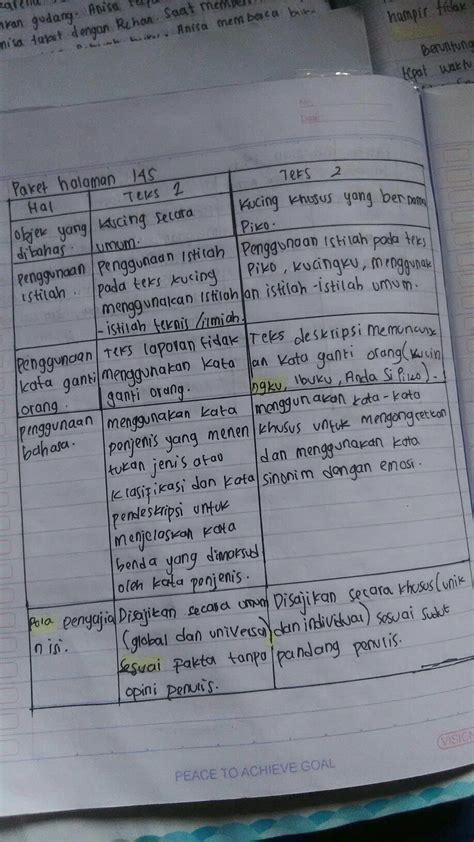 gudang. Anisa
dengan Rehan. Saat
Anisa membaca
hampir tidak
beruntung
tepat waktu
No.
Date.
Paket halaman 145
Hal
Teks 1
Teks 2
Objek yang
dibahas.
Kucing secara
umum.
Kucing khusus yang bernama
Piko.
Penggunaan
istilah.
Penggunaan Istilah
pada teks kucing
menggunakan Istilah
-istilah teknis/ilmiah.
Penggunaan Istilah pada teks
Piko, kucingku, menggunak
an istilah-istilah umum.
Penggunaan
kata ganti
orang.
Teks laporan tidak
menggunakan kata
ganti orang.
Teks deskripsi memuncunk
an kata ganti orang (kucin
ngku, Ibuku, Anda Si Piko).
Penggunaan
bahasa.
menggunakan kata
penjenis yang menen
tukan jenis atau
klasifikasi dan kata
pendeskripsi untuk
menjelaskan kata
benda yang dimaksud
oleh kata penjenis.
menggunakan kata-kata
khusus untuk mengongretkan
dan menggunakan kata
sinonim dengan emosi.
Pola penyajia
n isi.
Disajikan secara umum
(global dan universal)
sesuai fakta tanpa
opini penulis.
Disajikan secara khusus (unik
dan individual) sesuai sudut
pandang penulis.
VISION
PEACE TO ACHIEVE GOAL